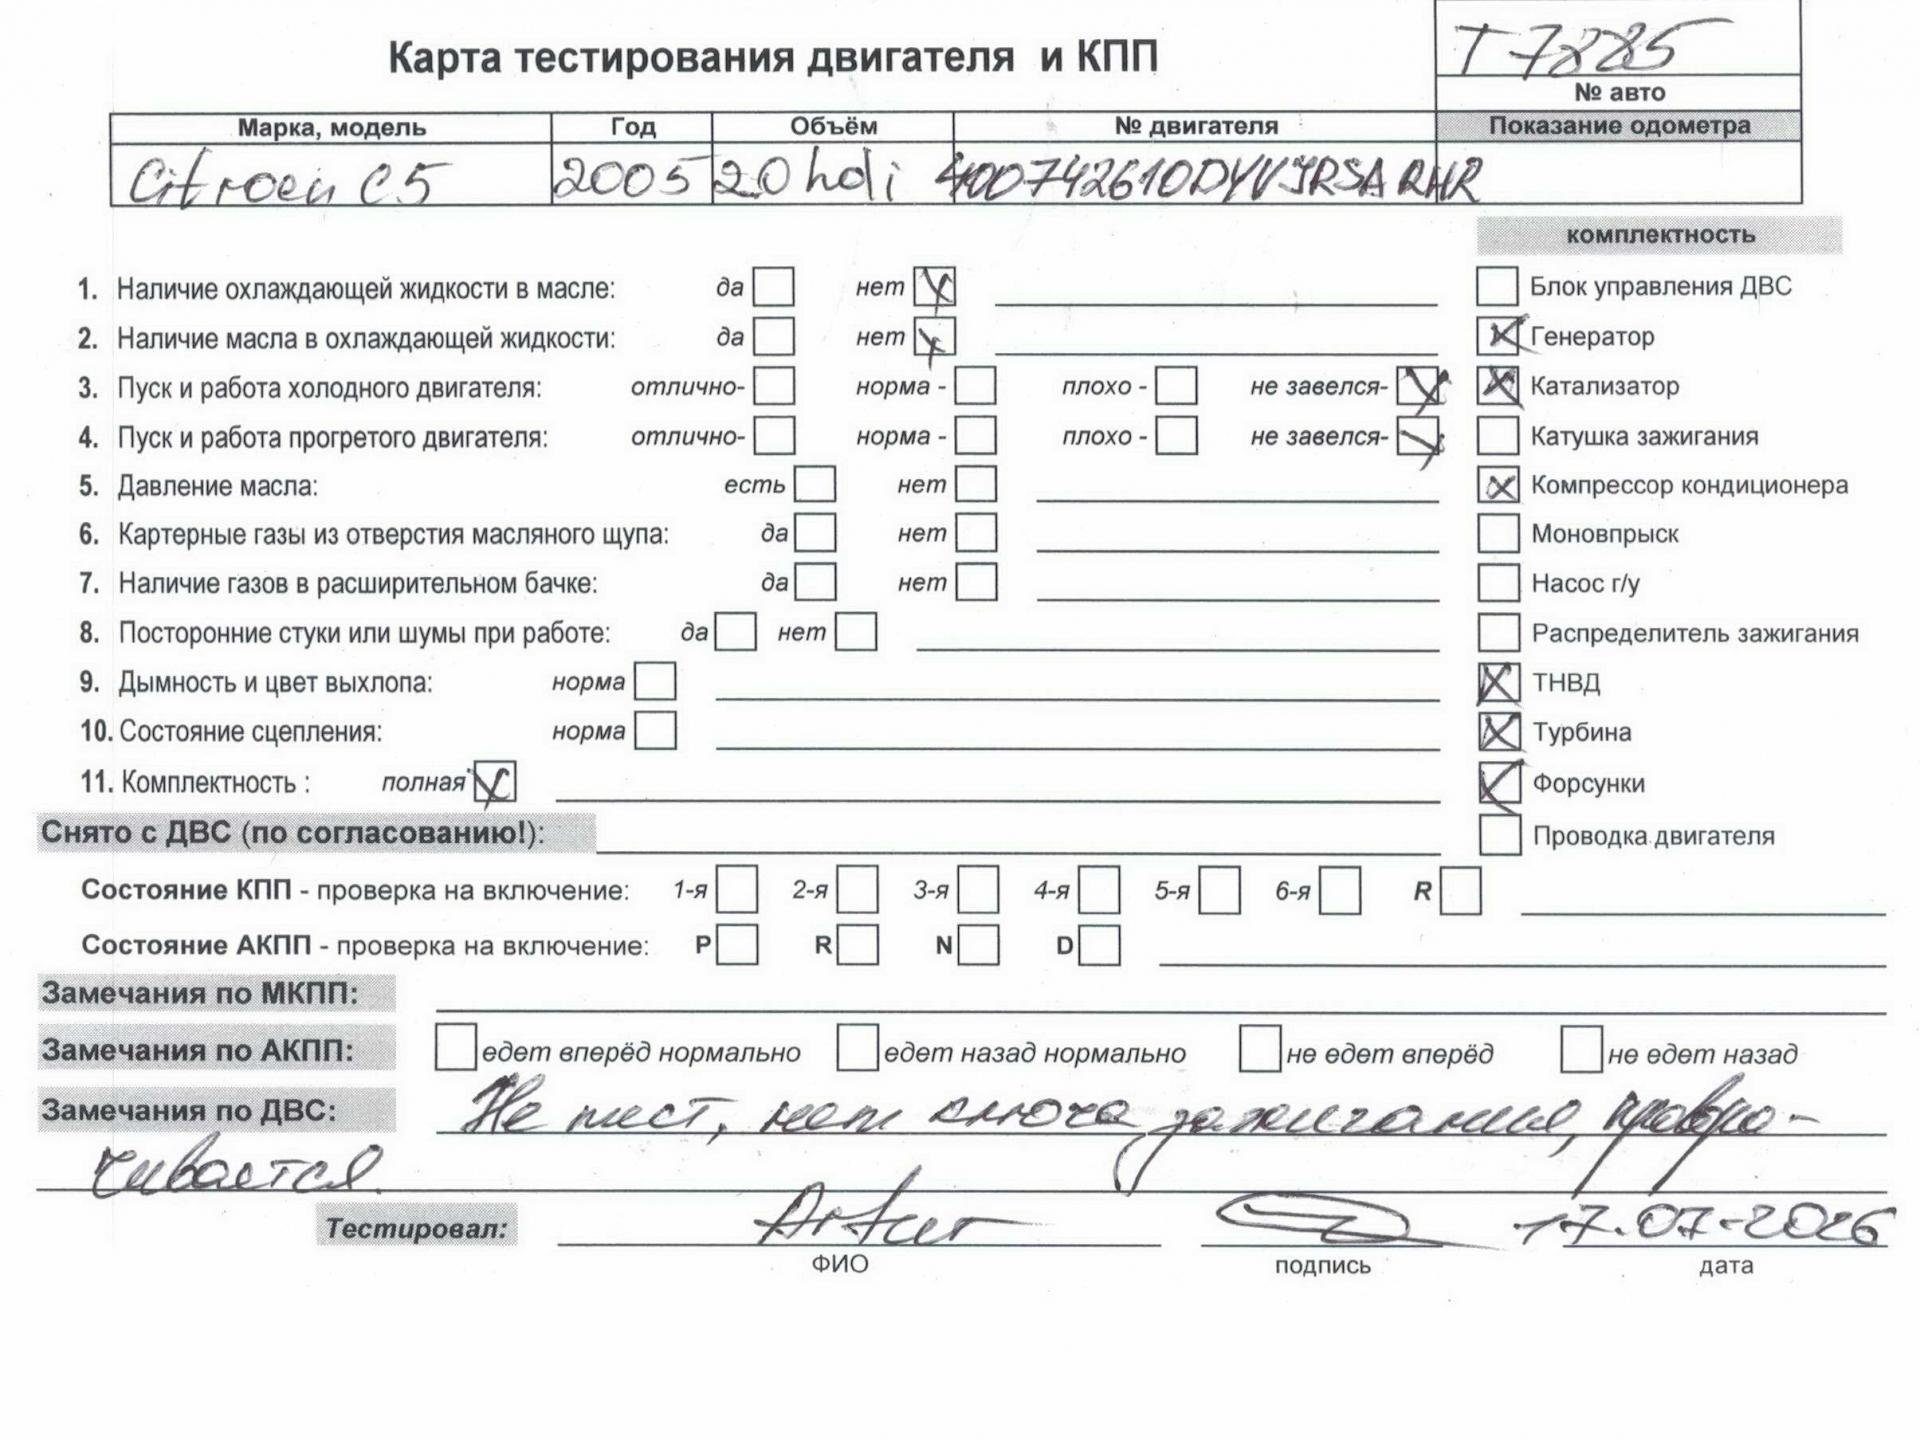 Т 7885
№ авто
Карта тестирования двигателя и КПП
Марка, модель Год Объём № двигателя Показание одометра
Citroen C5 2005 2.0 hdi RHR
комплектность
1. Наличие охлаждающей жидкости в масле: да нет Блок управления ДВС
2. Наличие масла в охлаждающей жидкости: да нет Генератор
3. Пуск и работа холодного двигателя: отлично- норма - плохо - не завелся- Катализатор
4. Пуск и работа прогретого двигателя: отлично- норма - плохо - не завелся- Катушка зажигания
5. Давление масла: есть нет Компрессор кондиционера
6. Картерные газы из отверстия масляного щупа: да нет Моновпрыск
7. Наличие газов в расширительном бачке: да нет Насос г/у
8. Посторонние стуки или шумы при работе: да нет Распределитель зажигания
9. Дымность и цвет выхлопа: норма ТНВД
10. Состояние сцепления: норма Турбина
11. Комплектность : полная Форсунки
Снято с ДВС (по согласованию!): Проводка двигателя
Состояние КПП - проверка на включение: 1-я 2-я 3-я 4-я 5-я 6-я R
Состояние АКПП - проверка на включение: P R N D
Замечания по МКПП:
Замечания по АКПП: едет вперёд нормально едет назад нормально не едет вперёд не едет назад
Замечания по ДВС: Не тест, нет ключа зажигания, проворо-
чивается.
Тестировал: Artur 17.07.2026
ФИО подпись дата